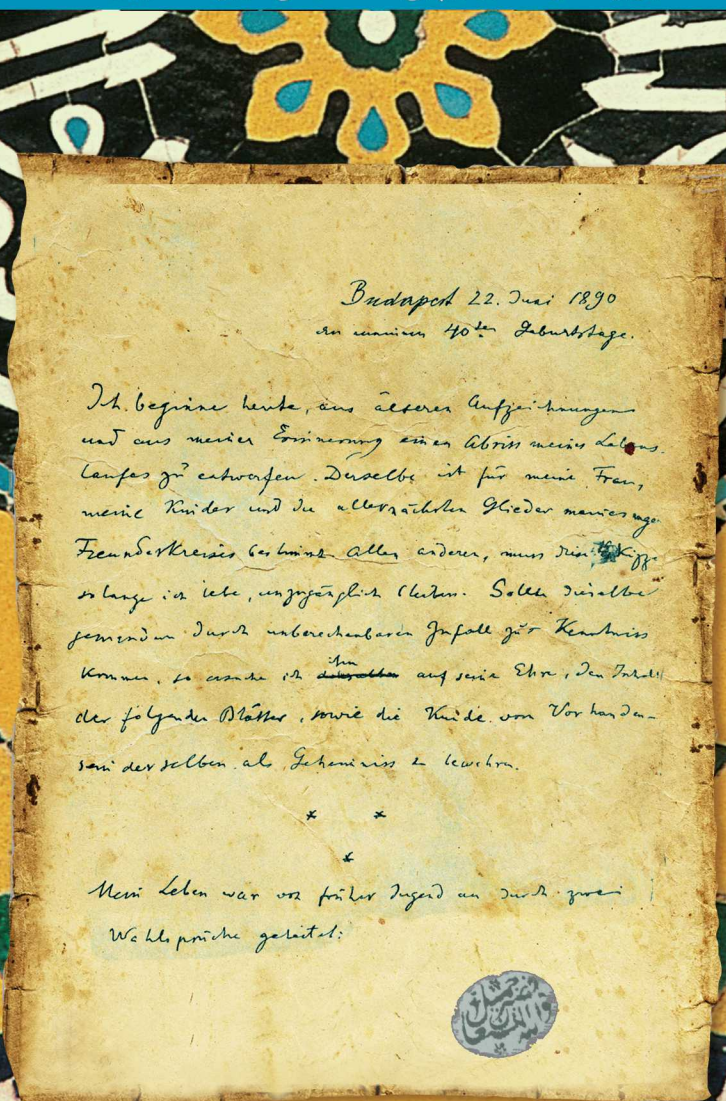 Budapest 22. Juni 1890
an meinem 40ten Geburtstage.
Ich beginne heute, aus älteren Aufzeichnungen
und aus meiner Erinnerung einen Abriss meines Lebens-
laufes zu entwerfen. Derselbe ist für meine Frau,
meine Kinder und die allernächsten Glieder meines enge
Freundeskreises bestimmt. Allen anderen, muss diese
solange ich lebe, unzugänglich bleiben. Sollte dieselbe
jemandem durch unberechenbaren Zufall zur Kenntniss
kommen, so ersuche ich ihn auf seine Ehre, den Inhalt
der folgenden Blätter, sowie die Kunde vom Vorhanden-
sein derselben als Geheimniss zu bewahren.
* *
*
Mein Leben war von früher Jugend an durch zwei
Wahlsprüche geleitet: